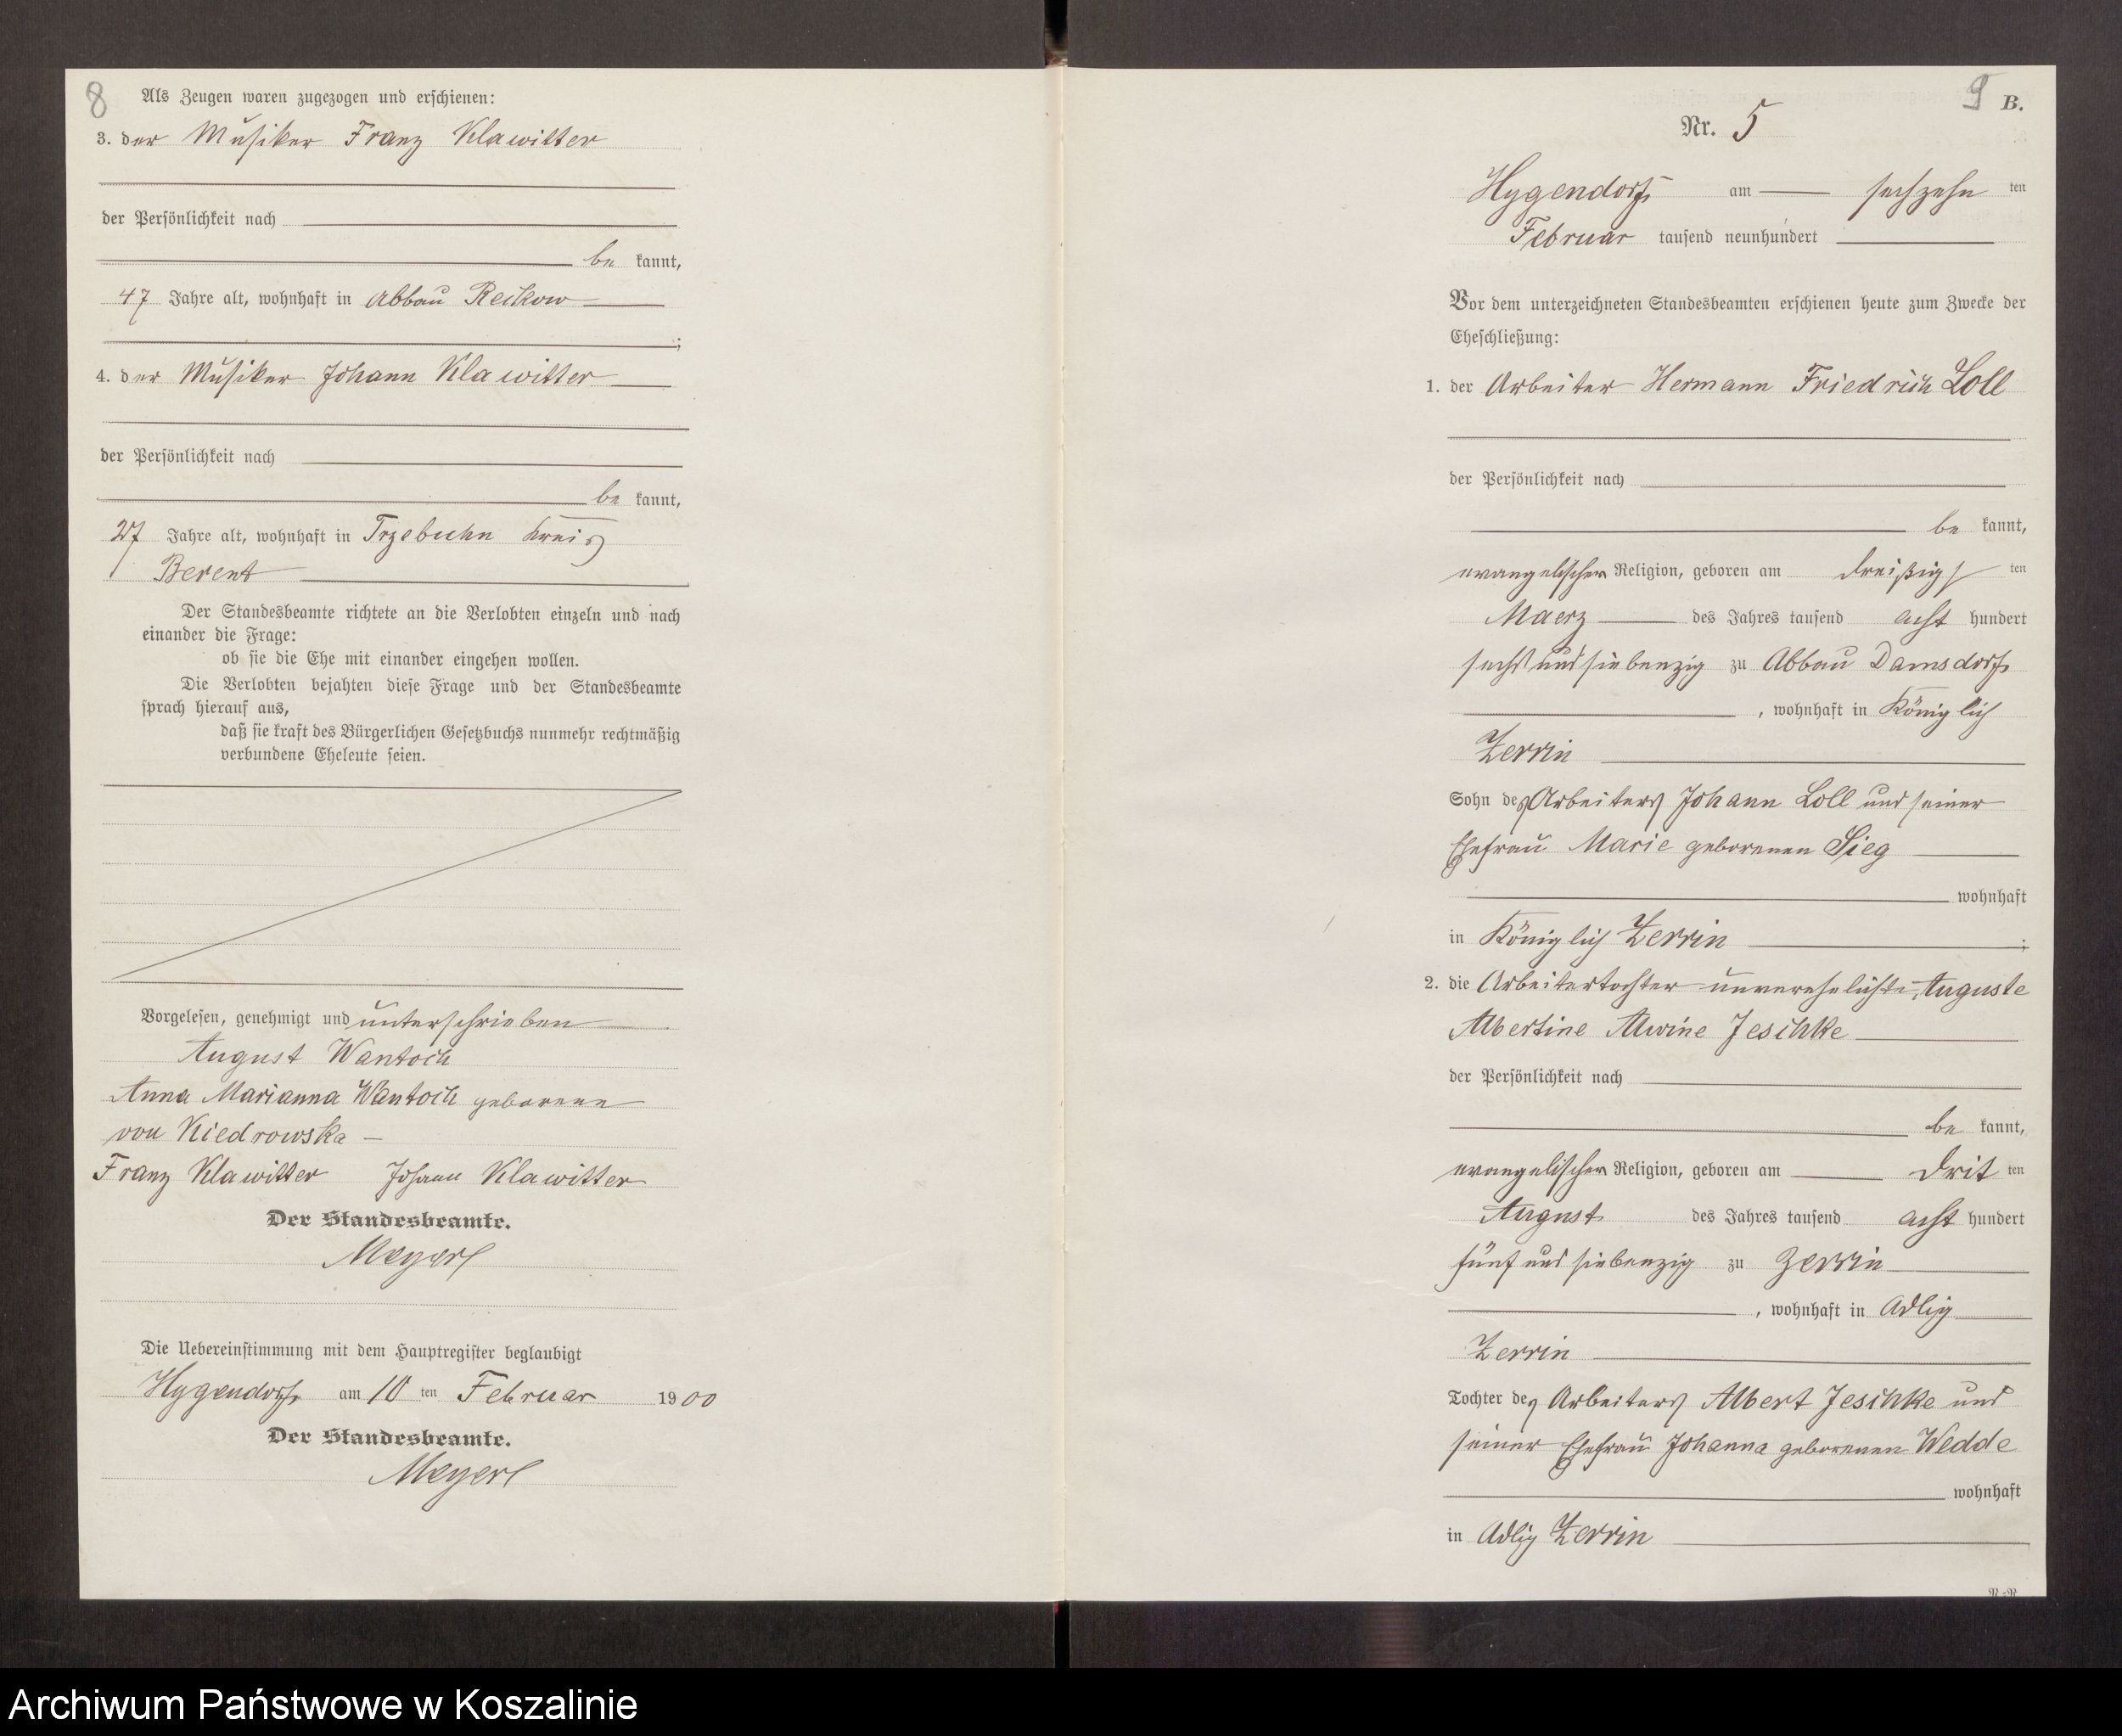 8
Als Zeugen waren zugezogen und erschienen:
3. der Musiker Franz Klawitter
der Persönlichkeit nach
be kannt,
47 Jahre alt, wohnhaft in Abbau Reckow
;
4. der Musiker Johann Klawitter
der Persönlichkeit nach
be kannt,
27 Jahre alt, wohnhaft in Trzebuhn Kreis
Berent
Der Standesbeamte richtete an die Verlobten einzeln und nach
einander die Frage:
ob sie die Ehe mit einander eingehen wollen.
Die Verlobten bejahten diese Frage und der Standesbeamte
sprach hierauf aus,
daß sie kraft des Bürgerlichen Gesetzbuchs nunmehr rechtmäßig
verbundene Eheleute seien.
Vorgelesen, genehmigt und unterschrieben
August Wantoch
Anna Marianna Wantoch geborene
von Kiedrowska
Franz Klawitter Johann Klawitter
Der Standesbeamte.
Die Uebereinstimmung mit dem Hauptregister beglaubigt
Hygendorf am 10 ten Februar 1900
Der Standesbeamte.
9 B.
Nr. 5
Hygendorf am sechzehn ten
Februar tausend neunhundert
Vor dem unterzeichneten Standesbeamten erschienen heute zum Zwecke der
Eheschließung:
1. der Arbeiter Hermann Friedrich Loll
der Persönlichkeit nach
be kannt,
evangelischer Religion, geboren am dreißigs ten
Maerz des Jahres tausend acht hundert
sechs und siebenzig zu Abbau Damsdorf
, wohnhaft in Königlich
Zerrin
Sohn des Arbeiters Johann Loll und seiner
Ehefrau Marie geborenen Sieg
wohnhaft
in Königlich Zerrin ;
2. die Arbeitertochter unverehelichte Auguste
Albertine Alwine Jeschke
der Persönlichkeit nach
be kannt,
evangelischer Religion, geboren am drit ten
August des Jahres tausend acht hundert
fünf und siebenzig zu Zerrin
, wohnhaft in Adlig
Zerrin
Tochter des Arbeiters Albert Jeschke und
seiner Ehefrau Johanna geborenen Wedde
wohnhaft
in Adlig Zerrin
Archiwum Państwowe w Koszalinie